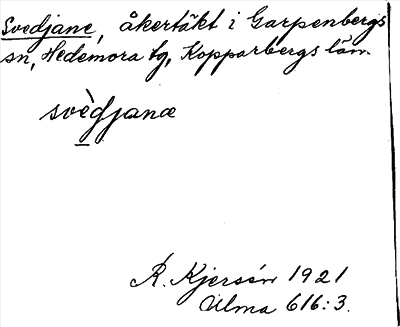 Svedjane, åkertäkt i Garpenbergs
sn, Hedemora tg, Kopparbergs län.
svèdjanæ
R. Kjersén 1921
Ulma 616:3.